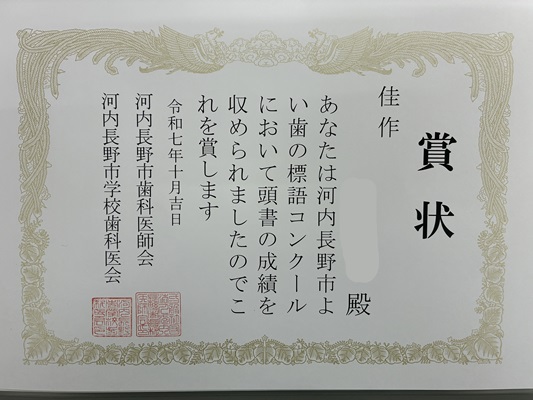 賞状
佳作
殿
あなたは河内長野市よ
い歯の標語コンクール
において頭書の成績を
収められましたのでこ
れを賞します
令和七年十月吉日
河内長野市歯科医師会
河内長野市学校歯科医会